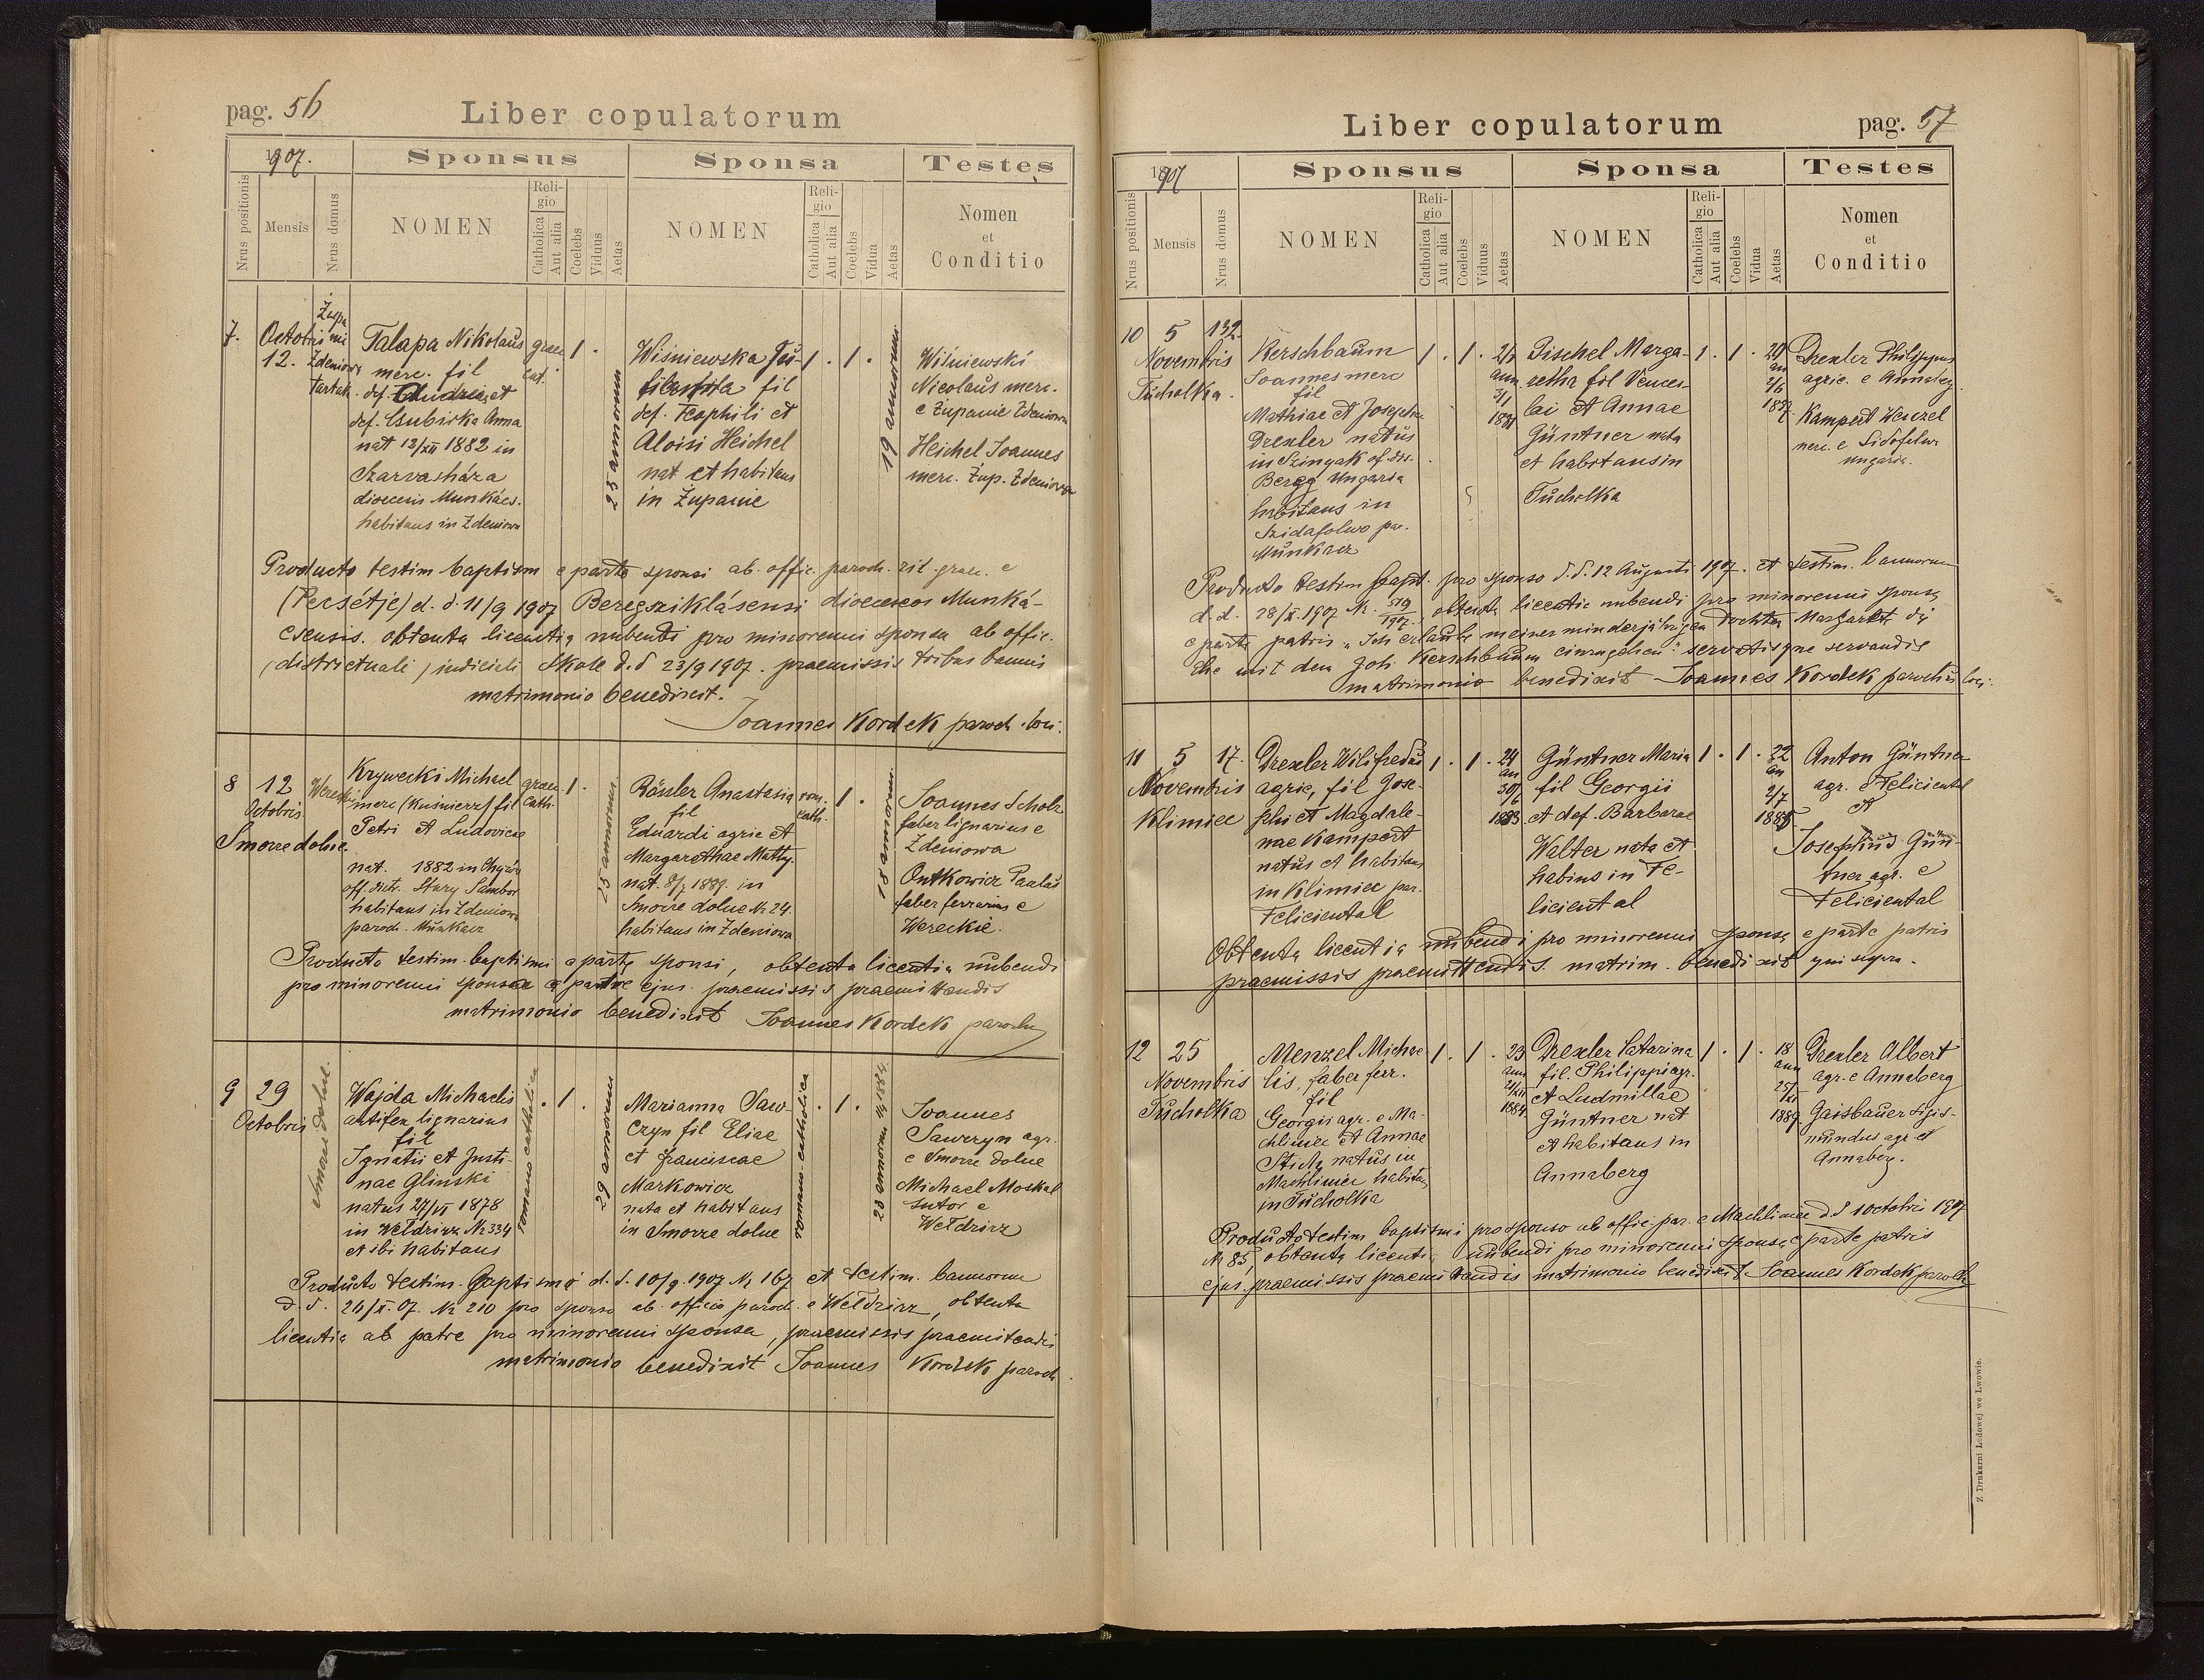 pag. 56
Liber copulatorum
1907.
Sponsus
Sponsa
Testes
Nrus positionis
Mensis
Nrus domus
NOMEN
Religio
Catholica
Aut alia
Coelebs
Viduus
Aetas
NOMEN
Religio
Catholica
Aut alia
Coelebs
Vidua
Aetas
Nomen
et
Conditio
7.
Octobris
12.
Zdeniowa
Tartak
Talapa Nikolaus
merc. fil
def. et
def. Csubirka Anna
nat 12/XII 1882 in
Szarvasháza
dioecesis Munkács.
habitans in Zdeniowa
graec
cat.
1 .
25 annorum
Wiśniewska
fil
def. Teophili et
Aloisi Heichel
nat et habitans
in Żupanie
1 . 1 .
19 annorum
Wiśniewski
Nicolaus merc.
e Żupanie Zdeniowa
Heichel Joannes
merc. Żup. Zdeniowa
Producto testim baptism e parte sponsi ab. offic. paroch. rit. graec. e
(Pecsétje) d. d. 11/9 1907 Beregsziklásensi dioeceseos Munká-
csensis. obtenta licentia nubendi pro minorenni sponsa ab offic.
(districtuali) judiciali Skole d. d 23/9 1907. praemissis tribus bannis
matrimonio benedixit.
Joannes Kordek paroch. loci.
8
12
Octobris
Werecki
Smorze dolne
Krywecki Michael
merc (kuśnierz) fil
Petri et Ludovicae
nat. 1882 in Chyrów
off. distr. Stary Sambor
habitans in Zdeniowa
paroch. Munkacz
graec
cath.
1 .
25 annorum
Rössler Anastasia
fil
Eduardi agric et
Margarethae Matty.
nat. 8/7 1889. in
Smorze dolne Nr 24.
habitans in Zdeniowa
rom.
cath.
1 .
18 annorum
Joannes Scholz
faber lignarius e
Zdeniowa
Ontkowicz Paulus
faber ferrarius e
Wereckie.
Producto testim. baptismi e parte sponsi, obtenta licentia nubendi
pro minorenni sponsa e patre ejus. praemissis praemittendis
matrimonio benedixit Joannes Kordek parochus
9
29
Octobris
Smorze dolne.
Wajda Michaelis
artifex lignarius
fil
Ignatii et Justi-
nae Glinski
natus 27/VI 1878
in Wełdzirz Nr 334
et ibi habitans
romano catholica
. 1 .
29 annorum
Marianna Saw-
czyn fil Eliae
et Franciscae
Markowicz
nata et habitans
in Smorze dolne
romano-catholica
. 1 .
23 annorum
Joannes
Sawczyn agr.
e Smorze dolne
Michael Moskal
sutor e
Wełdzirz
Producto testim. Baptismi d. d. 10/9. 1907 Nr 167 et testim. bannorum
d. d. 20/X. 07. Nr 210 pro sponso ab officio paroch. e Wełdzirz, obtenta
licentia ab patre pro minorenni sponsa, praemissis praemitendis
matrimonio benedixit Joannes Kordek paroch.
Liber copulatorum
pag. 57
1907
Sponsus
Sponsa
Testes
Nrus positionis
Mensis
Nrus domus
NOMEN
Religio
Catholica
Aut alia
Coelebs
Viduus
Aetas
NOMEN
Religio
Catholica
Aut alia
Coelebs
Vidua
Aetas
Nomen
et
Conditio
10
5
132.
Novembris
Tucholka.
Kerschbaum
Joannes merc
fil
Mathiae et Josepha
Drexler natus
in Szinyak of. dis.
Bereg Ungaria
habitans in
Szidafolwo par.
Munkacz
1 . 1 .
ann
Pischel Marga-
retha fil Vences-
lai et Annae
Güntner nata
et habitans in
Tucholka
1 . 1 .
20
an
Drexler Philippus
agric. e Annaberg.
Kampert Wenzel
merc. e Sidofolwo
Ungaria.
Producto testim bapt. pro sponso d. d. 12 Augusti 1907. et testim. bannorum
d. d. 28/X. 1907 Nr. 519/1907. obtenta licentia nubendi pro minorenni sponsa
e parte patris „Ich erlaube meiner minderjährigen Tochter Margaret die
Ehe mit den Joh. Kerschbaum einzugehen" servatisque servandis
matrimonio benedixit Joannes Kordek parochus loci.
11
5
17.
Novembris
Klimiec
Drexler Wilifredus
agric, fil Jose-
phi et Magdale-
nae Kampert
natus et habitans
in Klimiec par.
Felicienthal
1 . 1 .
24
an
30/6
1883
Güntner Maria
fil Georgii
et def. Barbarae
Walter nata et
habins in Fe-
liciental
1 . 1 .
22
an
2/7
1885
Anton Güntner
agr. Feliciental
et
Josephus Gün-
tner agr. e
Feliciental
Obtenta licentia nubendi pro minorenni sponsa e parte patris
praemissis praemittendis. matrim. benedixit qui supra.
12
25
Novembris
Tucholka
Menzel Michae-
lis, faber ferr.
fil
Georgii agr. e Ma-
chliniec et Annae
natus in
Machliniec habitans
in Tucholka
1 . 1 .
23
ann
1884
Drexler Catarina
fil. Philippi agr.
et Ludmillae
Güntner nat
et habitans in
Annaberg
1 . 1 .
18
ann
25/XI
1889
Drexler Albert
agr. e Annaberg
Gaisbauer Sigis-
mundus agr. e
Annaberg.
Producto testim baptismi pro sponso ab offic. par. e Machliniec d. d 1 octobris 1907
Nr 85, obtenta licentia nubendi pro minorenni sponsa e parte patris
ejus. praemissis praemitandis matrimonio benedixit Joannes Kordek paroch
Z Drukarni Ludowej we Lwowie.